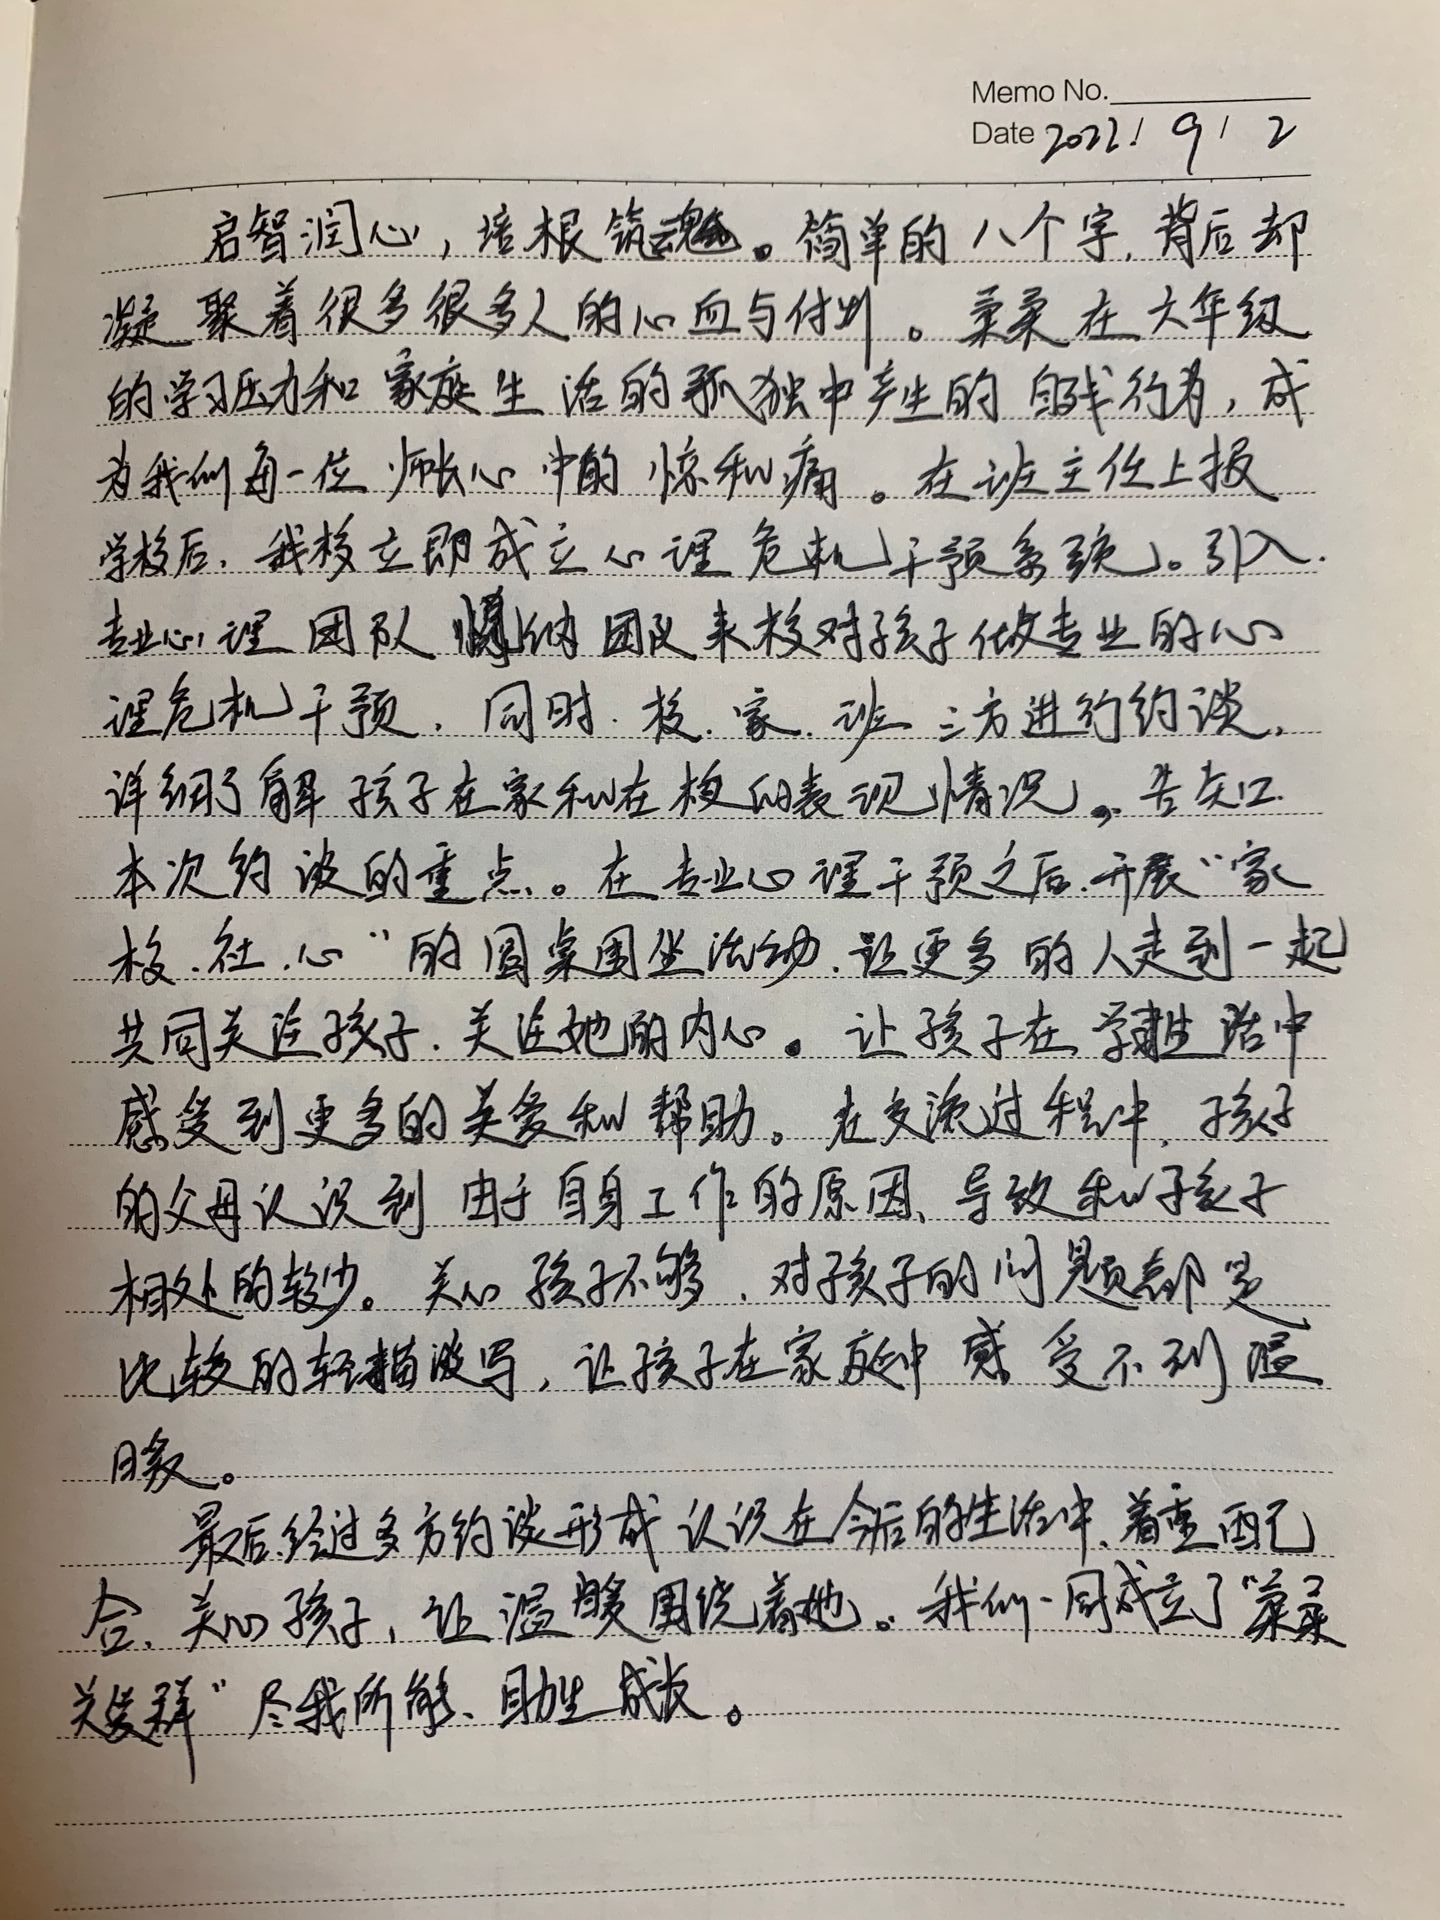 Memo No.
Date 2022 / 9 / 2
启智润心，培根筑魂。简单的八个字，背后却
凝聚着很多很多人的心血与付出。柔柔在六年级
的学习压力和家庭生活的孤独中产生的自残行为，成
为我们每一位师长心中的惊和痛。在班主任上报
学校后，我校立即成立心理危机干预系统。引入
专业心理团队 团队来校对孩子做专业的心
理危机干预，同时，校、家、班三方进行约谈，
详细了解孩子在家和在校的表现情况。告知
本次约谈的重点。在专业心理干预之后，开展“家
校、社、心”的圆桌围坐活动，让更多的人走到一起
共同关注孩子，关注她的内心。让孩子在 生活中
感受到更多的关爱和帮助。在交流过程中，孩子
的父母认识到由于自身工作的原因、导致和孩子
相处的较少。关心孩子不够，对孩子的问题都是
比较的轻描淡写，让孩子在家庭中感受不到温
暖。
最后经过多方约谈形成认识在今后的生活中，着重配
合、关心孩子，让温暖围绕着她。我们一同成立了“柔柔
关爱群”尽我所能、助生成长。